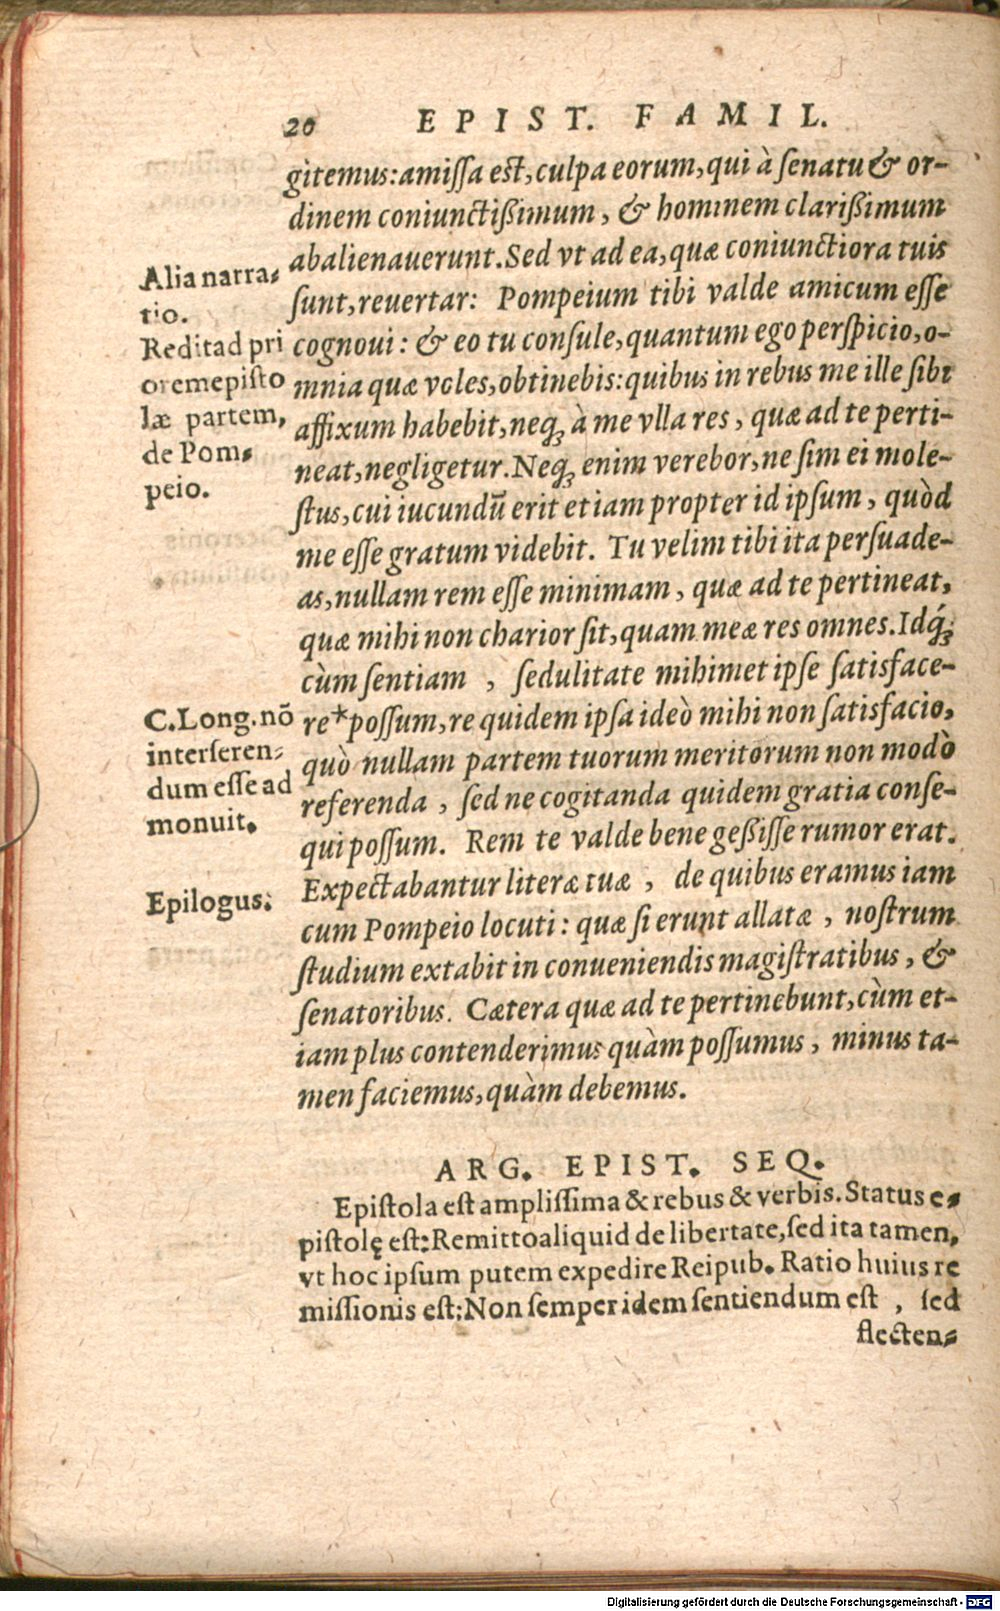 20 EPIST. FAMIL.
gitemus: amissa est, culpa eorum, qui à senatu & or-
dinem coniunctißimum, & hominem clarißimum
abalienauerunt. Sed vt ad ea, quæ coniunctiora tuis
sunt, reuertar: Pompeium tibi valde amicum esse
cognoui: & eo tu consule, quantum ego perspicio, o-
mnia quæ voles, obtinebis: quibus in rebus me ille sibi
affixum habebit, neq; à me vlla res, quæ ad te perti-
neat, negligetur. Neq; enim verebor, ne sim ei mole-
stus, cui iucundū erit etiam propter id ipsum, quòd
me esse gratum videbit. Tu velim tibi ita persuade-
as, nullam rem esse minimam, quæ ad te pertineat,
quæ mihi non charior sit, quam meæ res omnes. Idq́;
cùm sentiam, sedulitate mihimet ipse satisface-
re* possum, re quidem ipsa ideò mihi non satisfacio,
quò nullam partem tuorum meritorum non modò
referenda, sed ne cogitanda quidem gratia conse-
qui possum. Rem te valde bene geßisse rumor erat.
Expectabantur literæ tuæ, de quibus eramus iam
cum Pompeio locuti: quæ si erunt allatæ, nostrum
studium extabit in conueniendis magistratibus, &
senatoribus. Cætera quæ ad te pertinebunt, cùm et-
iam plus contenderimus quàm possumus, minus ta-
men faciemus, quàm debemus.
Alia narra-
tio.
Redit ad pri
orem episto
læ partem,
de Pom-
peio.
C. Long. nō
interseren-
dum esse ad
monuit.
Epilogus.
ARG. EPIST. SEQ.
Epistola est amplissima & rebus & verbis. Status e-
pistolę est: Remitto aliquid de libertate, sed ita tamen,
vt hoc ipsum putem expedire Reipub. Ratio huius re
missionis est: Non semper idem sentiendum est, sed
flecten-
Digitalisierung gefördert durch die Deutsche Forschungsgemeinschaft - DFG